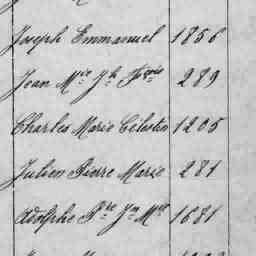 Joseph Emmanuel 1856
Jean Mie Jh Fçois 289
Charles Marie Célestin 1205
Julien Pierre Marie 281
Adolphe Pre Jn Mie 1681